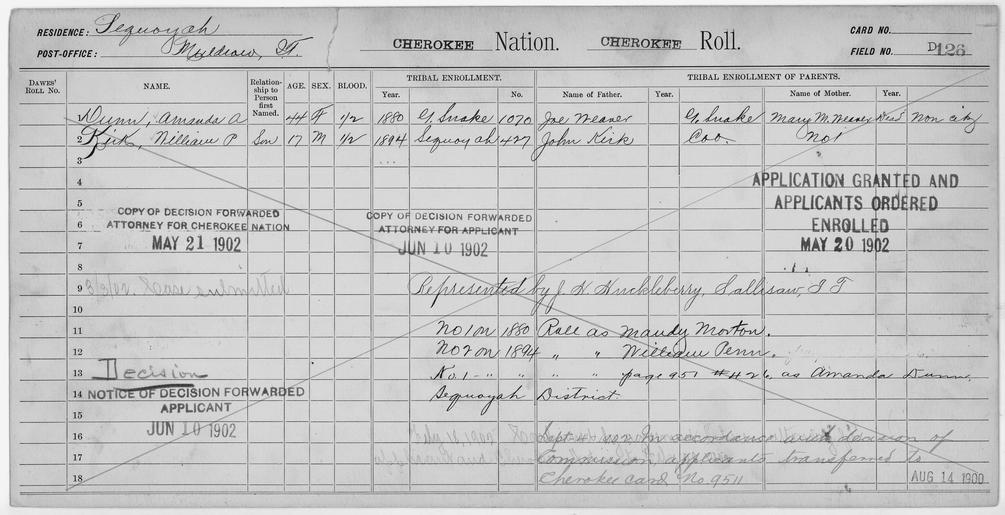 RESIDENCE: Sequoyah
POST-OFFICE: Muldrow, I.T.
CHEROKEE Nation. CHEROKEE Roll.
CARD NO.
FIELD NO. D126
Dawes' Roll No. NAME. Relationship to Person first Named. AGE. SEX. BLOOD. TRIBAL ENROLLMENT. Year. No. TRIBAL ENROLLMENT OF PARENTS. Name of Father. Year. Name of Mother. Year.
1 Dunn, Amanda A 44 F 1/2 1880 G. Snake 1070 Joe Weaver G. Snake Mary M. Weaver Dead Non citz
2 Kirk, William P Son 17 M 1/2 1894 Sequoyah 427 John Kirk Coo. No 1
3
4
APPLICATION GRANTED AND
APPLICANTS ORDERED
ENROLLED
MAY 20 1902
5
6
7
COPY OF DECISION FORWARDED
ATTORNEY FOR CHEROKEE NATION
MAY 21 1902
COPY OF DECISION FORWARDED
ATTORNEY FOR APPLICANT
JUN 10 1902
8
9 3/3/02. Case submitted Represented by J. K. Huckleberry, Sallisaw, I T
10
11 No 1 on 1880 Roll as Maudy Morton.
12 No 2 on 1894 " " William Penn.
13 No. 1 - " " " " page 951 #426, as Amanda Dunn,
14 Sequoyah District.
Decision
NOTICE OF DECISION FORWARDED
APPLICANT
JUN 10 1902
15
16 Sept 4 1902 In accordance with decision of
17 Commission applicants transferred to
18 Cherokee card No. 9511
AUG 14 1900